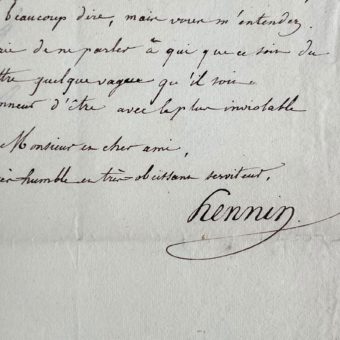 beaucoup dire, mais vous m'entendez.
rie de ne parler à qui que ce soit du
ttre quelque vague qu'il soit.
onneur d'être avec le plus inviolable
Monsieur en cher ami,
très-humble en très-obéissant serviteur,
hennin.